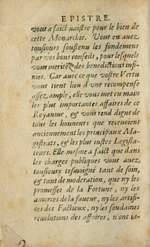 EPISTRE
vous a faict naistre pour le bien de
cette Monarchie. Vous en auez
tousiours soustenu les fondemens
par vos bons conseils, pour lesquels
vous meritez des benedictions infi-
nies. Car outre ce que vostre Vertu
vous tient lieu d'une recompense
assez ample, elle vous met en main
les plus importantes affaires de ce
Royaume, & vous rend digne de
tous les honneurs que receuoient
anciennement les principaux Ma-
gistrats, & les plus iustes Legisla-
teurs. Elle mesme a faict que dans
les charges publiques vous auez
tousiours tesmoigné tant de soin,
& tant de moderation, que ny les
promesses de la Fortune, ny les
amorces de la faueur, ny les artifi-
ces des Factieux, ny les soudaines
reuolutions des affaires, n'ont ia-